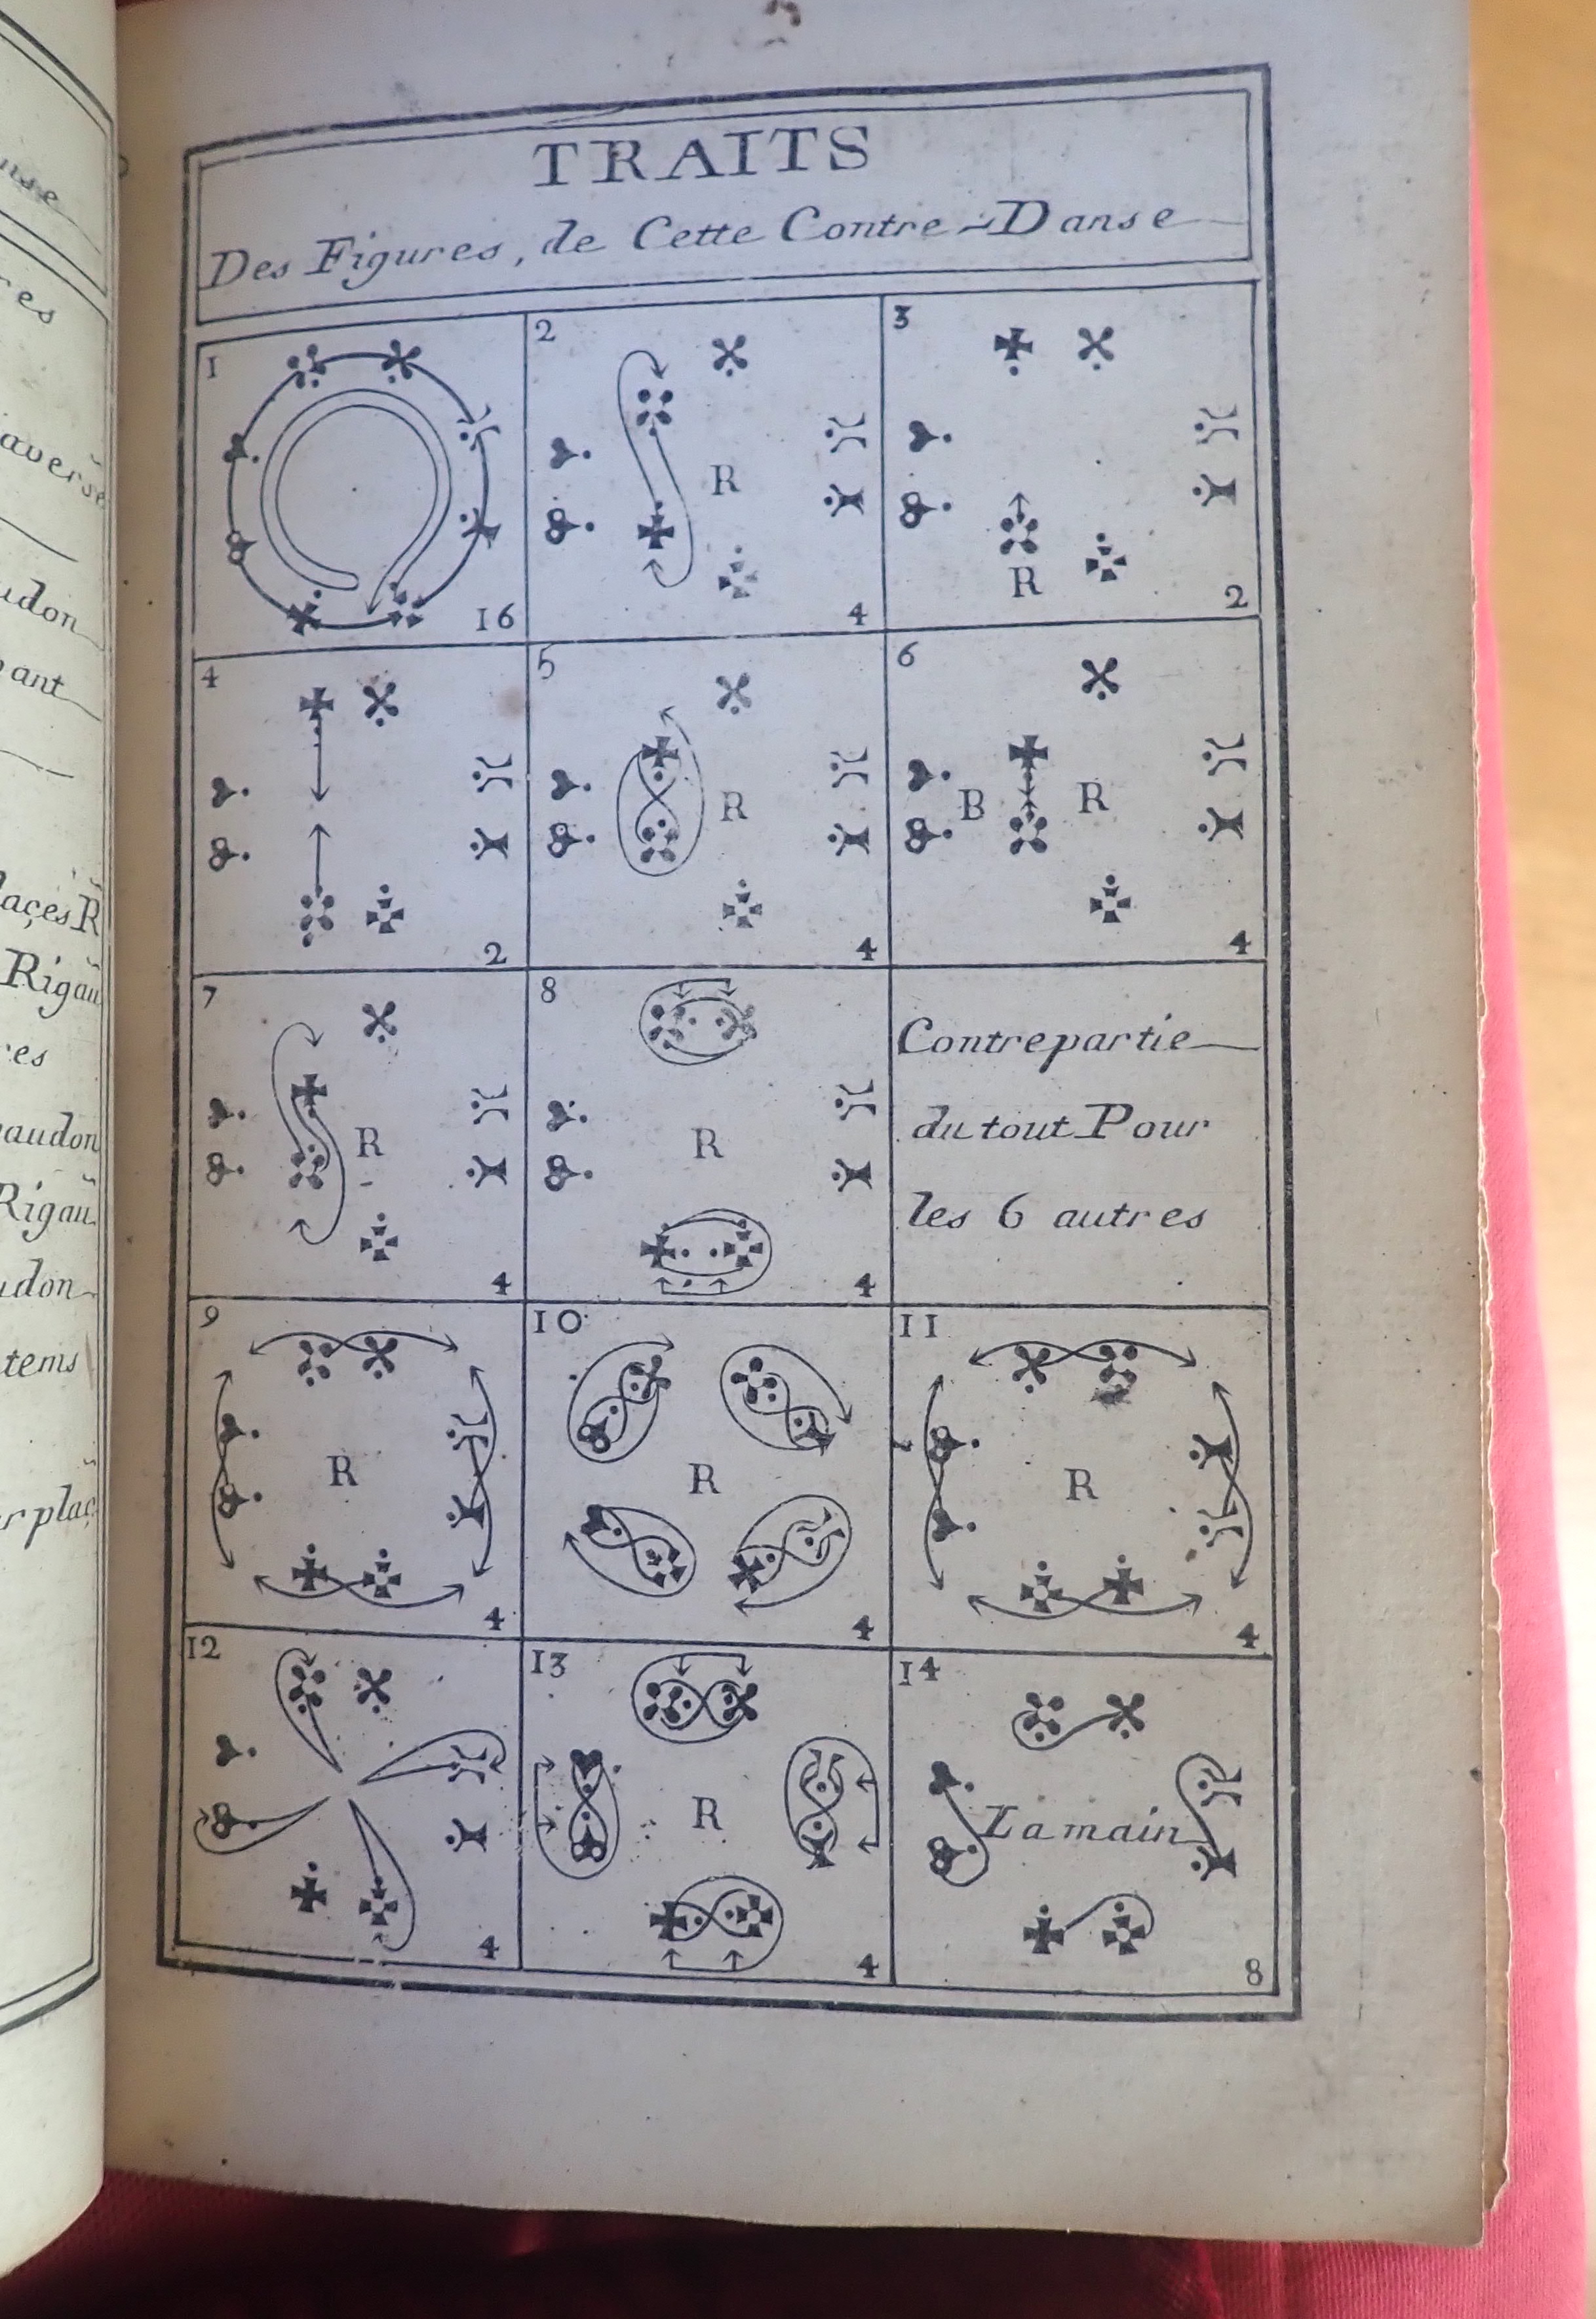 TRAITS
Des Figures, de Cette Contre-Danse
1
16
2
R
4
3
R
2
4
2
5
R
4
6
B R
4
7
R
4
8
R
4
Contrepartie
du tout Pour
les 6 autres
9
R
4
10
R
4
11
R
4
12
4
13
R
4
14
La main
8
res
udon
ant
laçes R
Rigau
res
audon
Rigau
udon
tems
r plaç